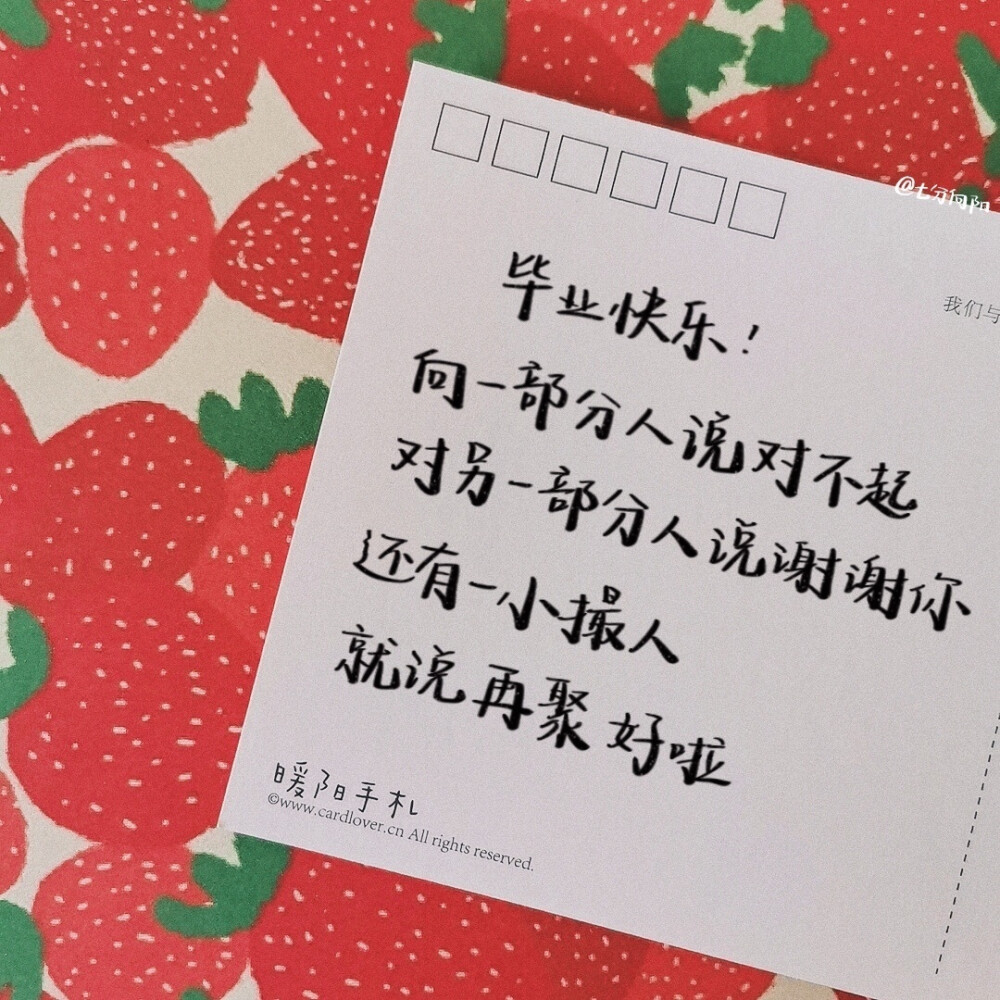 @七分向阳
我们与
毕业快乐!
向一部分人说对不起
对另一部分人说谢谢你
还有一小撮人
就说再聚好啦
暖阳手札
©www.cardlover.cn All rights reserved.